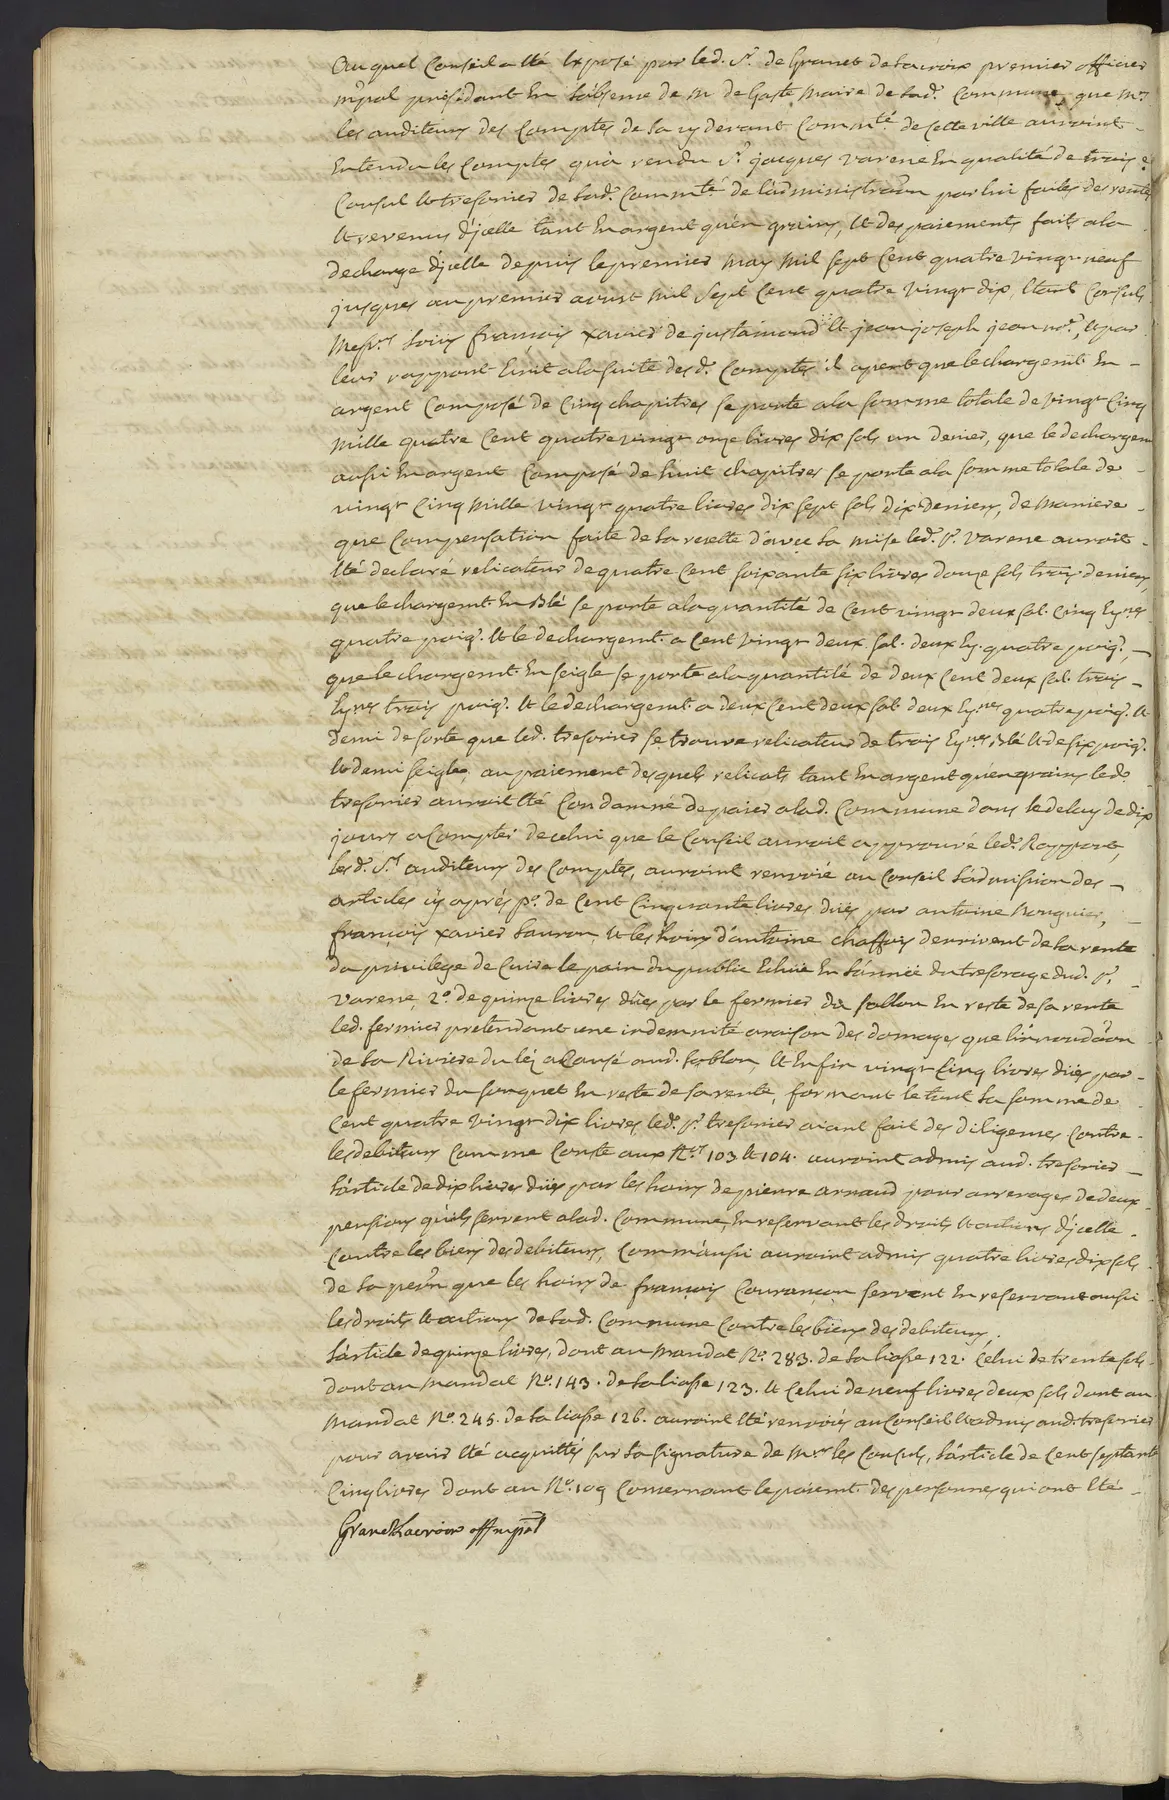 Auquel Conseil a été exposé par led. Sr. de Granet de Lacroix premier officier
mpal présidant en l'absence de M de Gaste Maire de lad. Commune, que Mrs.
les auditeurs des Comptes de la cy devant Commté. de cette ville auroint
Entendu les Comptes qu'a rendu Sr. jacques Varene En qualité de trois.e
Consul et tresorier de lad. Commté de l'administraon par lui faite des rentes
et revenus d'jcelle tant En argent qu'en grains, et des paiements faits a la
decharge d'jcelle depuis le premier may mil sept Cent quatre vingt neuf
jusques au premier aoust mil sept Cent quatre vingt dix, étant Consuls
Messrs. Louis françois xavier de justamond et jean joseph jean nore., et par
leur rapport Ecrit a la suite des d. Comptes il apert que le chargemt. En
argent Composé de Cinq chapitres se porte a la somme totale de vingt Cinq
mille quatre Cent quatre vingt onze livres dix sols un denier, que le dechargemt
aussi En argent Composé de huit chapitres se porte a la somme totale de
vingt Cinq mille vingt quatre livres dix sept sols dix deniers, de maniere
que Compensation faite de la recette d'avec la mise led. Sr. Varene auroit
été declaré relicateur de quatre Cent soixante six livres douze sols trois deniers,
que le chargemt En Blé se porte a la quantité de Cent vingt deux sal. Cinq Eynes
quatre poig. et le dechargemt. a Cent vingt deux sal. deux Ey. quatre poig.,
que le chargemt. En seigle se porte a la quantité de deux Cent deux sal. trois
Eynes trois poig. et le dechargemt. a deux Cent deux sal. deux Eynes quatre poig. et
demi de sorte que led. tresorier se trouve relicateur de trois Eynes Blé et de six poig.
et demi seigle, au paiement desquels relicats tant En argent qu'en grains led.
tresorier auroit été Condamné de paier a lad. Commune dans le delay de dix
jours a Compter de celui que le Conseil auroit approuvé led. Rapport,
les d. Srs auditeurs des Comptes, auroint renvoié au Conseil l'admission des
articles cy après po. de Cent Cinquante livres dües par antoine Rouguier,
françois xavier Lauron, et les hoirs d'antoine chaffois derrivent de la rente
du privilege de Cuire le pain du public Echüe En l'année du tresorage dud. Sr.
Varene, 2o. de quinze livres dües par le fermier du sablon En reste de sa rente
led. fermier pretendant une indemnité a raison des domages que l'innondaon
de la Riviere du léz a Causé aud. sablon, et Enfin vingt Cinq livres dües par
le fermier du souquet En reste de sa rente, formant le tout la somme de
Cent quatre vingt dix livres, led. Sr. tresorier aiant fait des diligences Contre
les debiteurs Comme Conste aux Nos 103 et 104. auroint admis aud. tresorier
l'article de dix livres dües par les hoirs de pierre arnaud pour arrerages de deux
pensions qu'ils servent a lad. Commune, En reservant les droits et actions d'jcelle
Contre les biens des debiteurs, Comm'aussi auroint admis quatre livres dix sols
de la peon que les hoirs de françois Courançon servent En reservant aussi
les droits et actions de lad. Commune Contre les biens des debiteurs,
l'article de quinze livres, dont au mandat No. 283. de la liasse 122. Celui de trente sols
dont au mandat No. 143. de la liasse 123. et Celui de neuf livres deux sols dont au
mandat No. 245. de la liasse 126. auroint été renvoiés au Conseil et admis aud. tresorier
pour avoir été acquittés sur la signature de Mrs les Consuls, l'article de Cent septante
Cinq livres dont au No. 109 Concernant le paiemt. des personnes qui ont été
Granet Lacroix off mpal